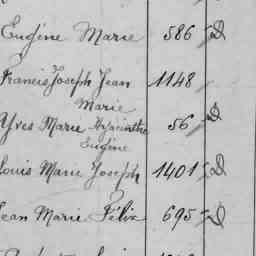 Eugène Marie 586 D
Francis Joseph Jean 1148
Marie
Yves Marie Hyacinthe 56 D
Eugène
Louis Marie Joseph 1401 D
Jean Marie Félix 695 D